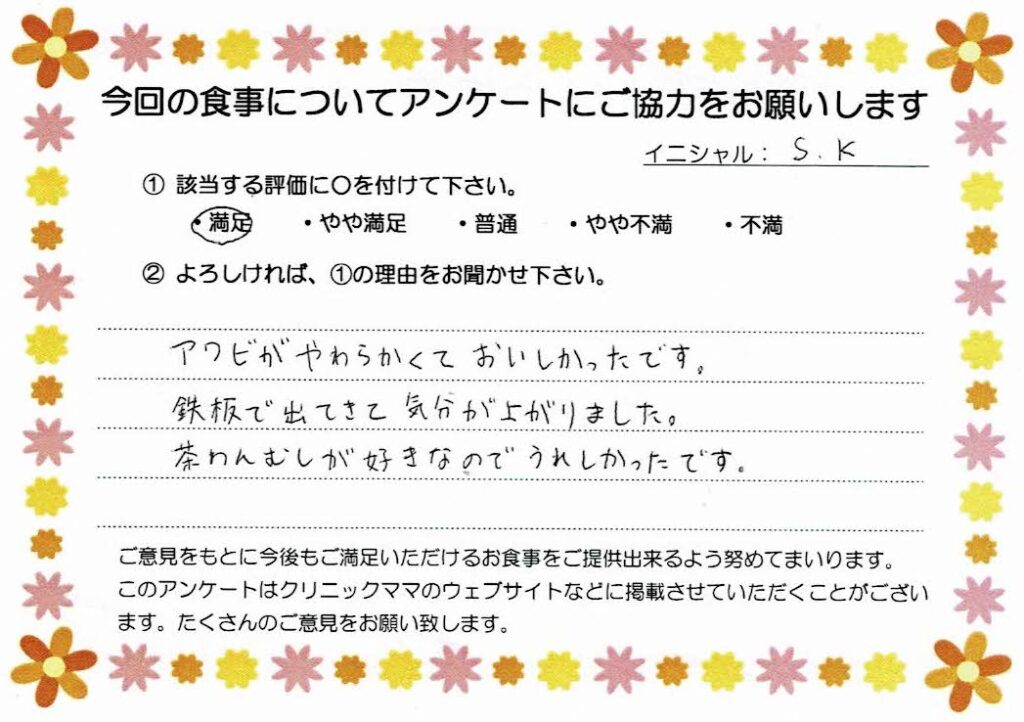 今回の食事についてアンケートにご協力をお願いします
イニシャル： S.K
① 該当する評価に○を付けて下さい。
・満足 ・やや満足 ・普通 ・やや不満 ・不満
② よろしければ、①の理由をお聞かせ下さい。
アワビがやわらかくて おいしかったです。
鉄板で出てきて 気分が上がりました。
茶わんむしが好きなので うれしかったです。
ご意見をもとに今後もご満足いただけるお食事をご提供出来るよう努めてまいります。
このアンケートはクリニックママのウェブサイトなどに掲載させていただくことがござい
ます。たくさんのご意見をお願い致します。